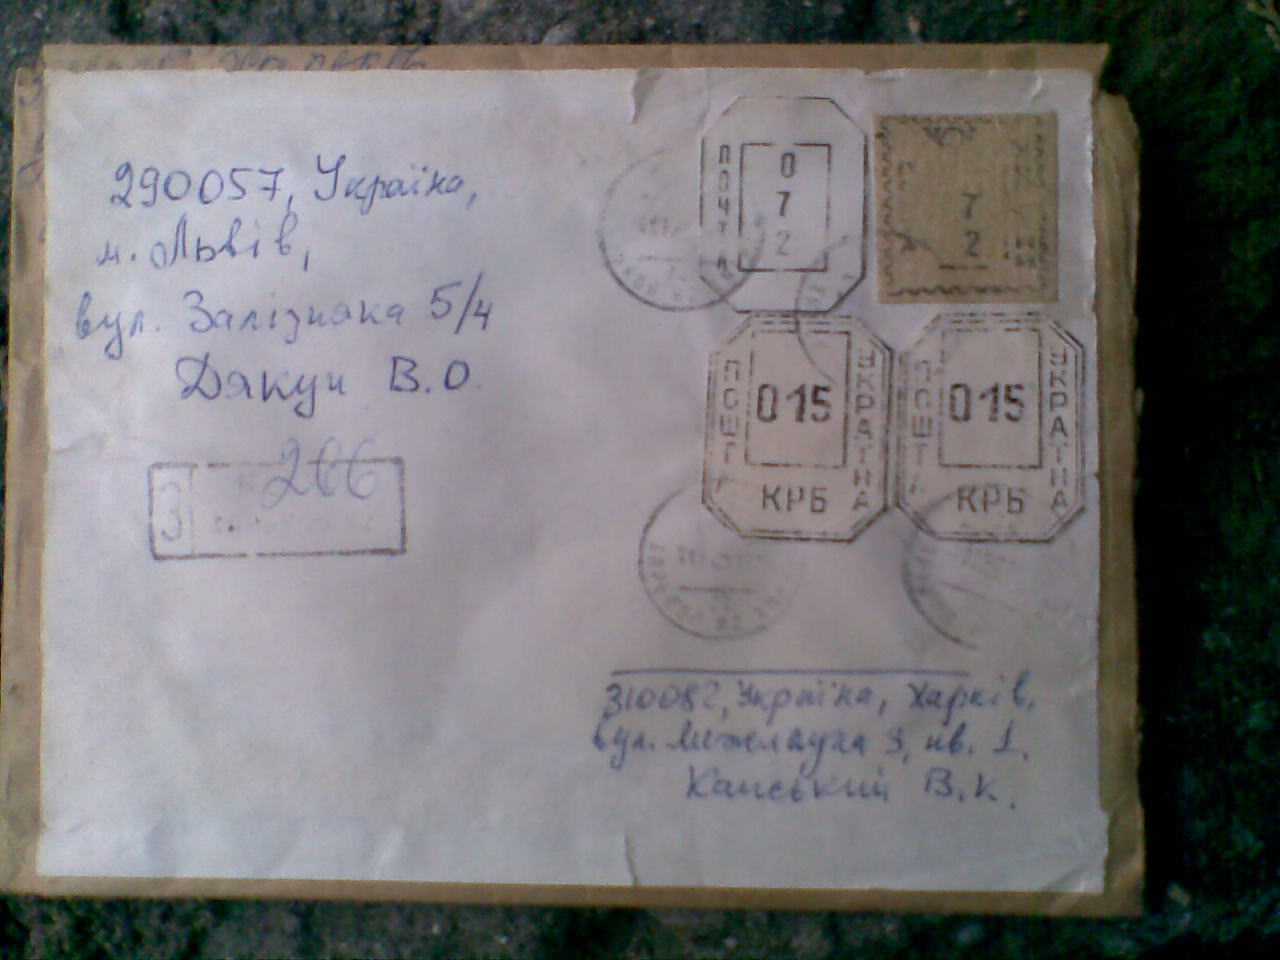 290057, Україна,
м. Львів,
вул. Залізняка 5/4
Дякун В.О.
З
206
ПОЧТА
0
7
2
7
2
ПОШТА
015
КРБ
УКРАЇНА
ПОШТА
015
КРБ
УКРАЇНА
310082, Україна, Харків,
вул. 3, кв. 1.
В.К.